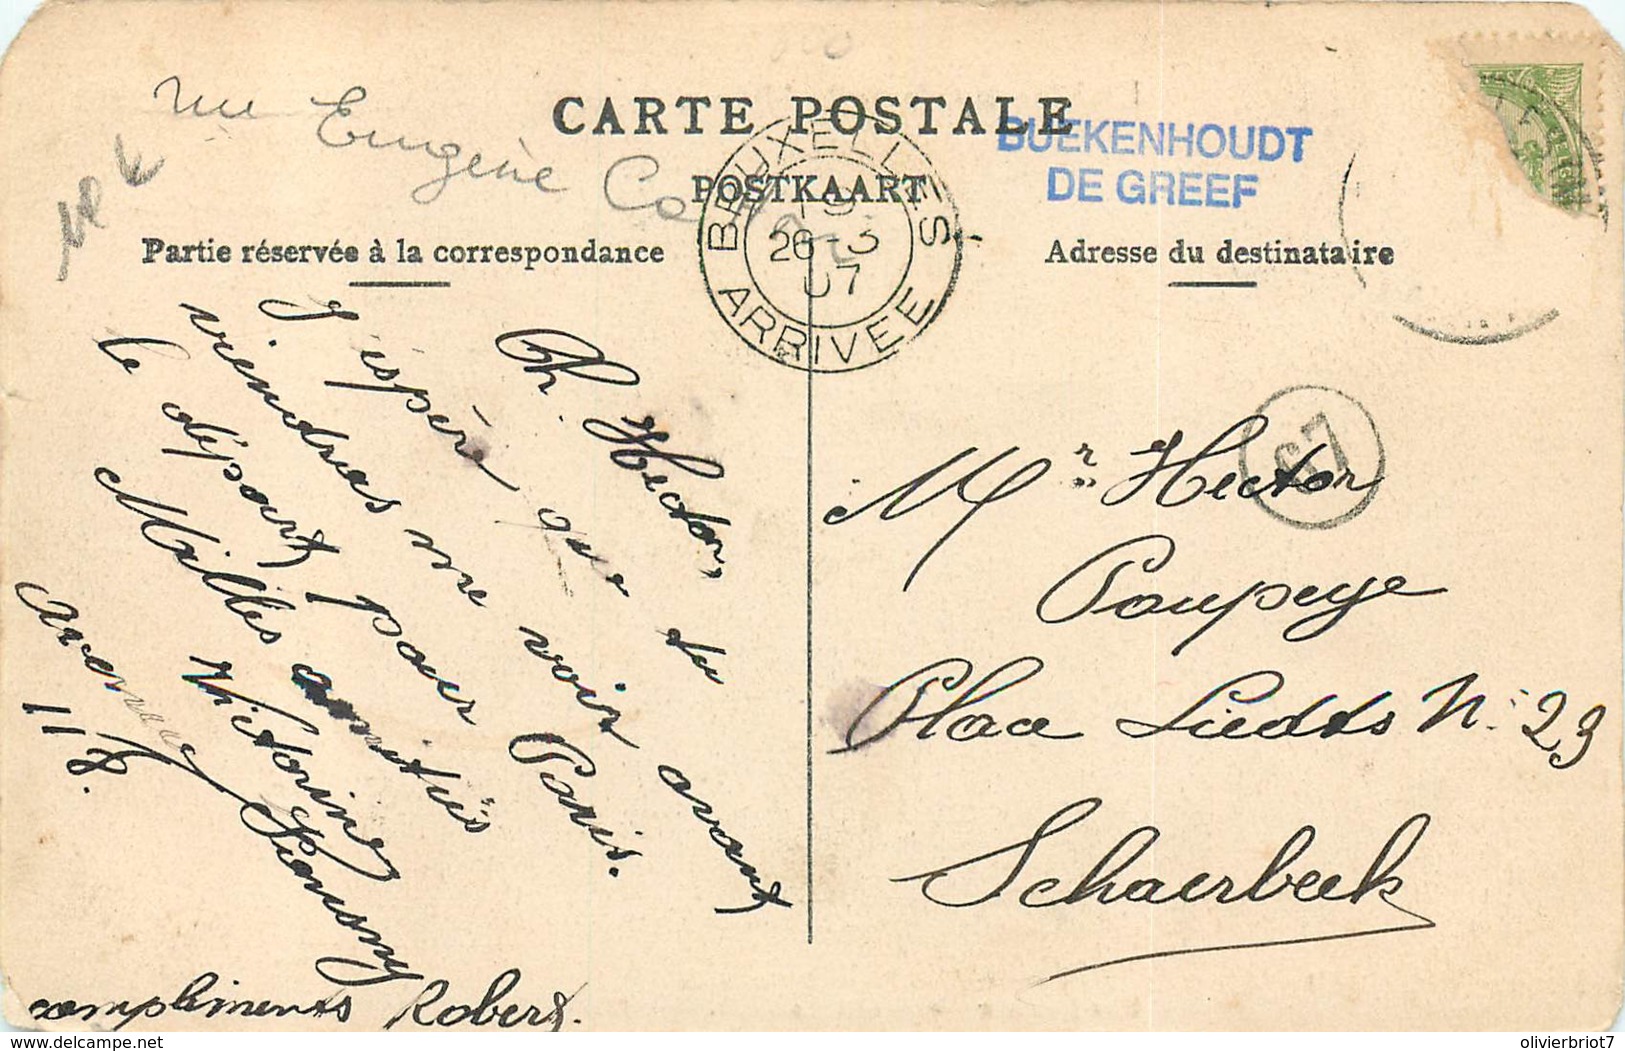 rue Eugène
CARTE POSTALE
POSTKAART
BUEKENHOUDT
DE GREEF
Partie réservée à la correspondance
Adresse du destinataire
BRUXELLES
26-3
07
ARRIVEE
Ch. Hector, tu
J'espère que
viendras me voir avant
le départ pour Paris.
Milles amitiés
Victorine
avenue
118.
compliments Robert.
67
Mr Hector
Poupeye
Place Liedts N: 23
Schaerbeek
delcampe.net
olivierbriot7